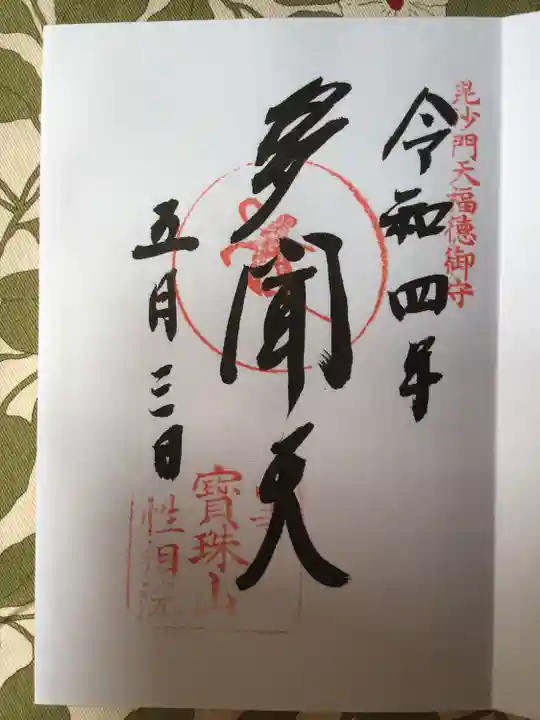 毘沙門天福徳御守
令和四年
多聞天
五月三日
寶珠山
性相院